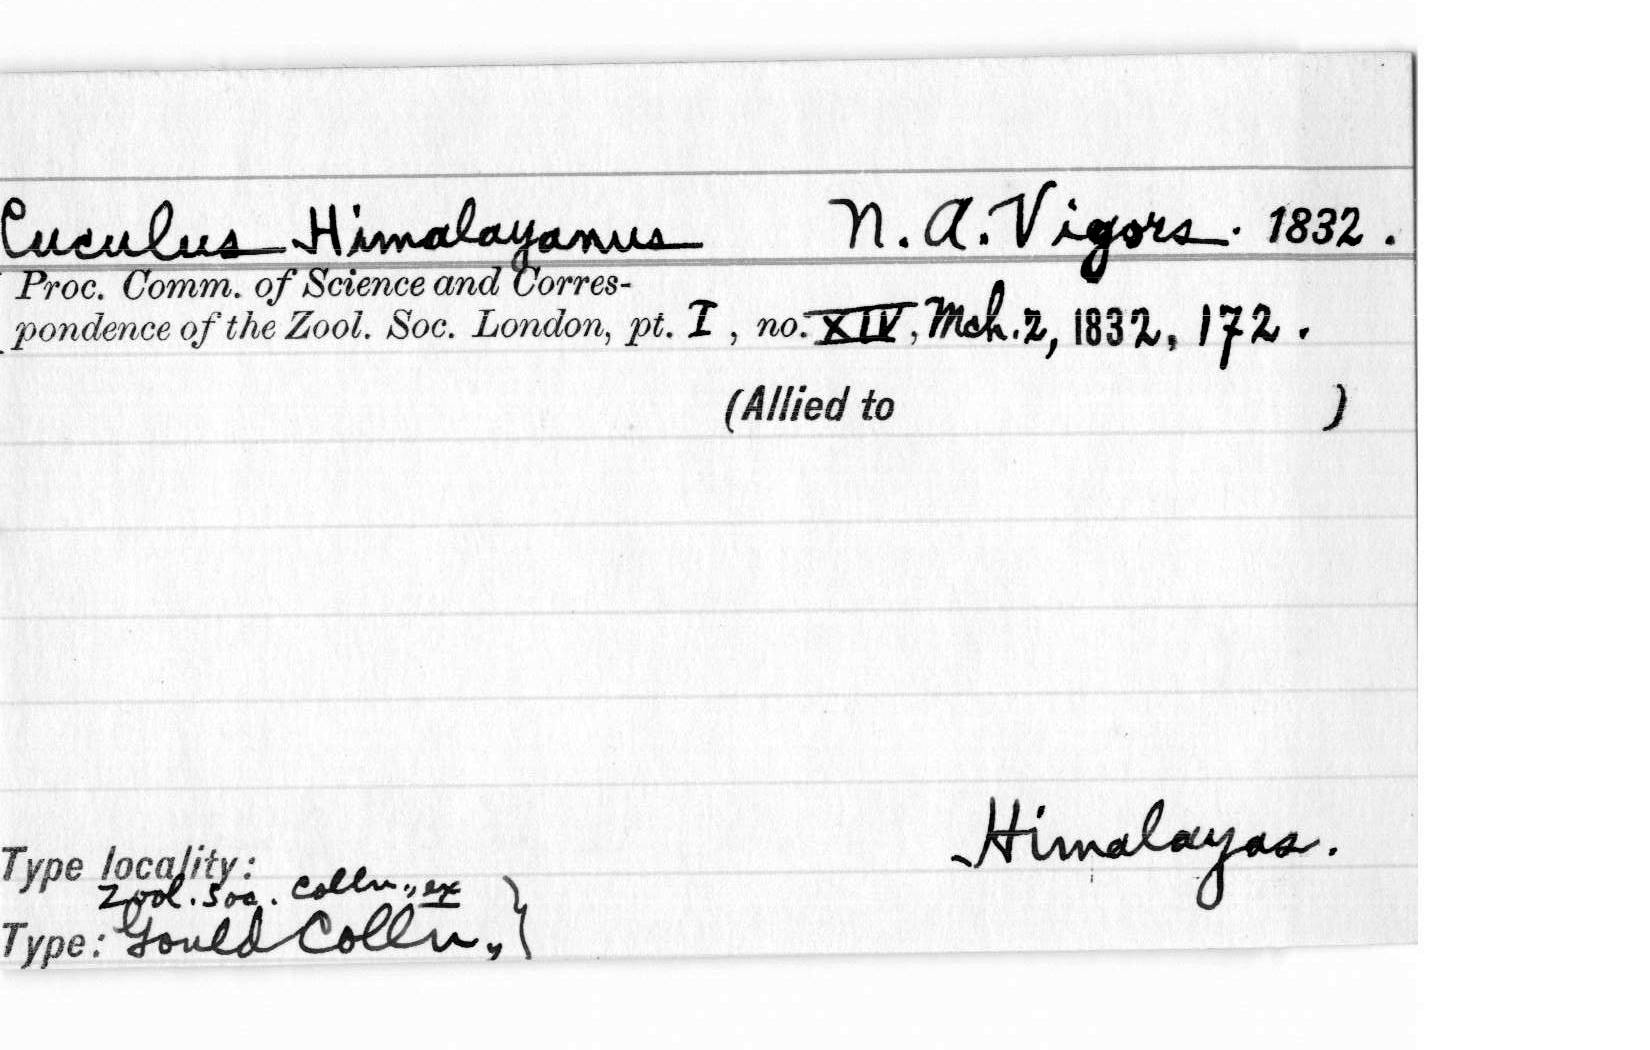 Cuculus Himalayanus N. A. Vigors. 1832.
Proc. Comm. of Science and Corres-
pondence of the Zool. Soc. London, pt. I, no. XIV, Mch. 2, 1832, 172.
(Allied to )
Himalayas.
Type locality:
Zool. Soc. Colln., ex
Type: Gould Colln., }